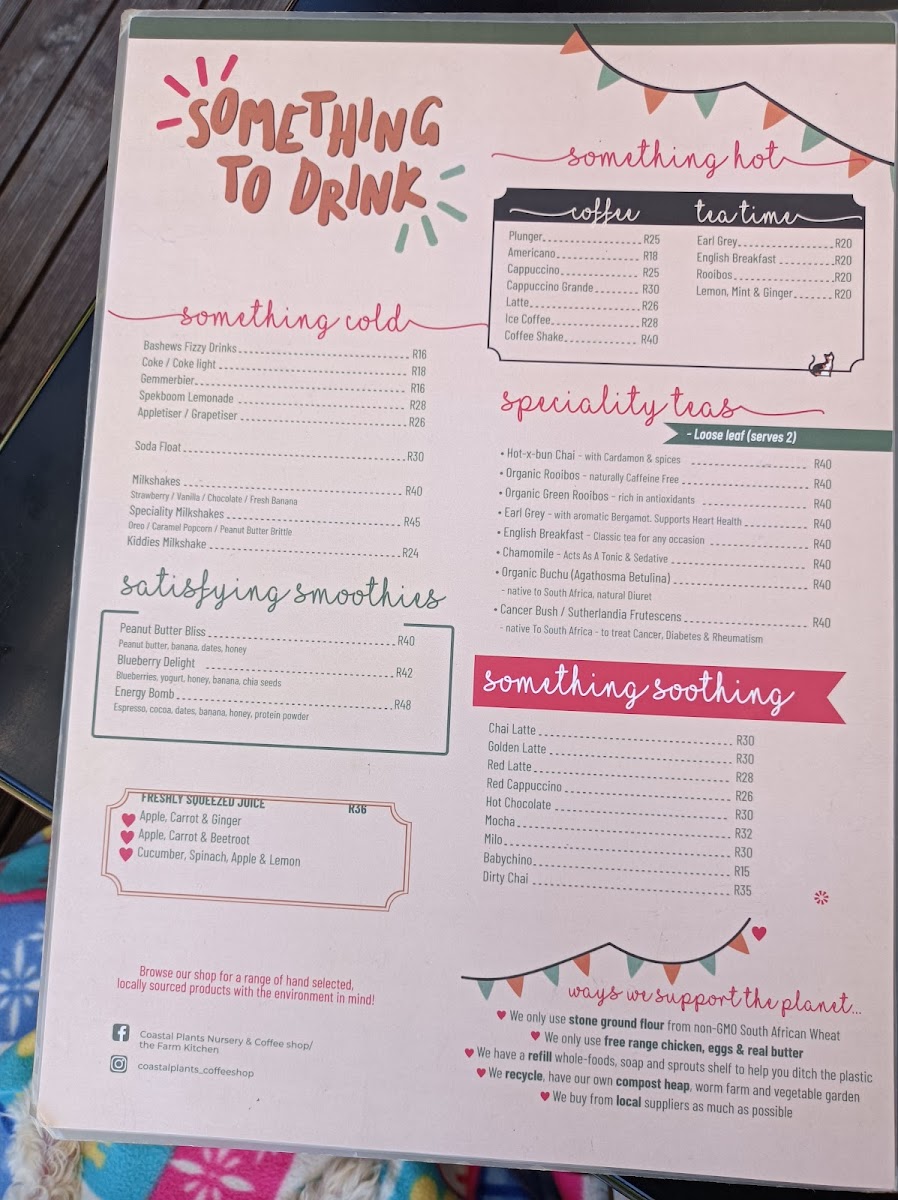 SOMETHING
TO DRINK
something cold
Bashews Fizzy Drinks R16
Coke / Coke light R18
Gemmerbier R16
Spekboom Lemonade R28
Appletiser / Grapetiser R26
Soda Float R30
Milkshakes R40
Strawberry / Vanilla / Chocolate / Fresh Banana
Speciality Milkshakes R45
Oreo / Caramel Popcorn / Peanut Butter Brittle
Kiddies Milkshake R24
satisfying smoothies
Peanut Butter Bliss R40
Peanut butter, banana, dates, honey
Blueberry Delight R42
Blueberries, yogurt, honey, banana, chia seeds
Energy Bomb R48
Espresso, cocoa, dates, banana, honey, protein powder
FRESHLY SQUEEZED JUICE R36
Apple, Carrot & Ginger
Apple, Carrot & Beetroot
Cucumber, Spinach, Apple & Lemon
Browse our shop for a range of hand selected,
locally sourced products with the environment in mind!
Coastal Plants Nursery & Coffee shop/
the Farm Kitchen
coastalplants_coffeeshop
something hot
coffee
Plunger R25
Americano R18
Cappuccino R25
Cappuccino Grande R30
Latte R26
Ice Coffee R28
Coffee Shake R40
tea time
Earl Grey R20
English Breakfast R20
Rooibos R20
Lemon, Mint & Ginger R20
speciality teas
- Loose leaf (serves 2)
• Hot-x-bun Chai - with Cardamon & spices R40
• Organic Rooibos - naturally Caffeine Free R40
• Organic Green Rooibos - rich in antioxidants R40
• Earl Grey - with aromatic Bergamot. Supports Heart Health R40
• English Breakfast - Classic tea for any occasion R40
• Chamomile - Acts As A Tonic & Sedative R40
• Organic Buchu (Agathosma Betulina) R40
- native to South Africa, natural Diuret
• Cancer Bush / Sutherlandia Frutescens R40
- native To South Africa - to treat Cancer, Diabetes & Rheumatism
something soothing
Chai Latte R30
Golden Latte R30
Red Latte R28
Red Cappuccino R26
Hot Chocolate R30
Mocha R32
Milo R30
Babychino R15
Dirty Chai R35
ways we support the planet...
We only use stone ground flour from non-GMO South African Wheat
We only use free range chicken, eggs & real butter
We have a refill whole-foods, soap and sprouts shelf to help you ditch the plastic
We recycle, have our own compost heap, worm farm and vegetable garden
We buy from local suppliers as much as possible